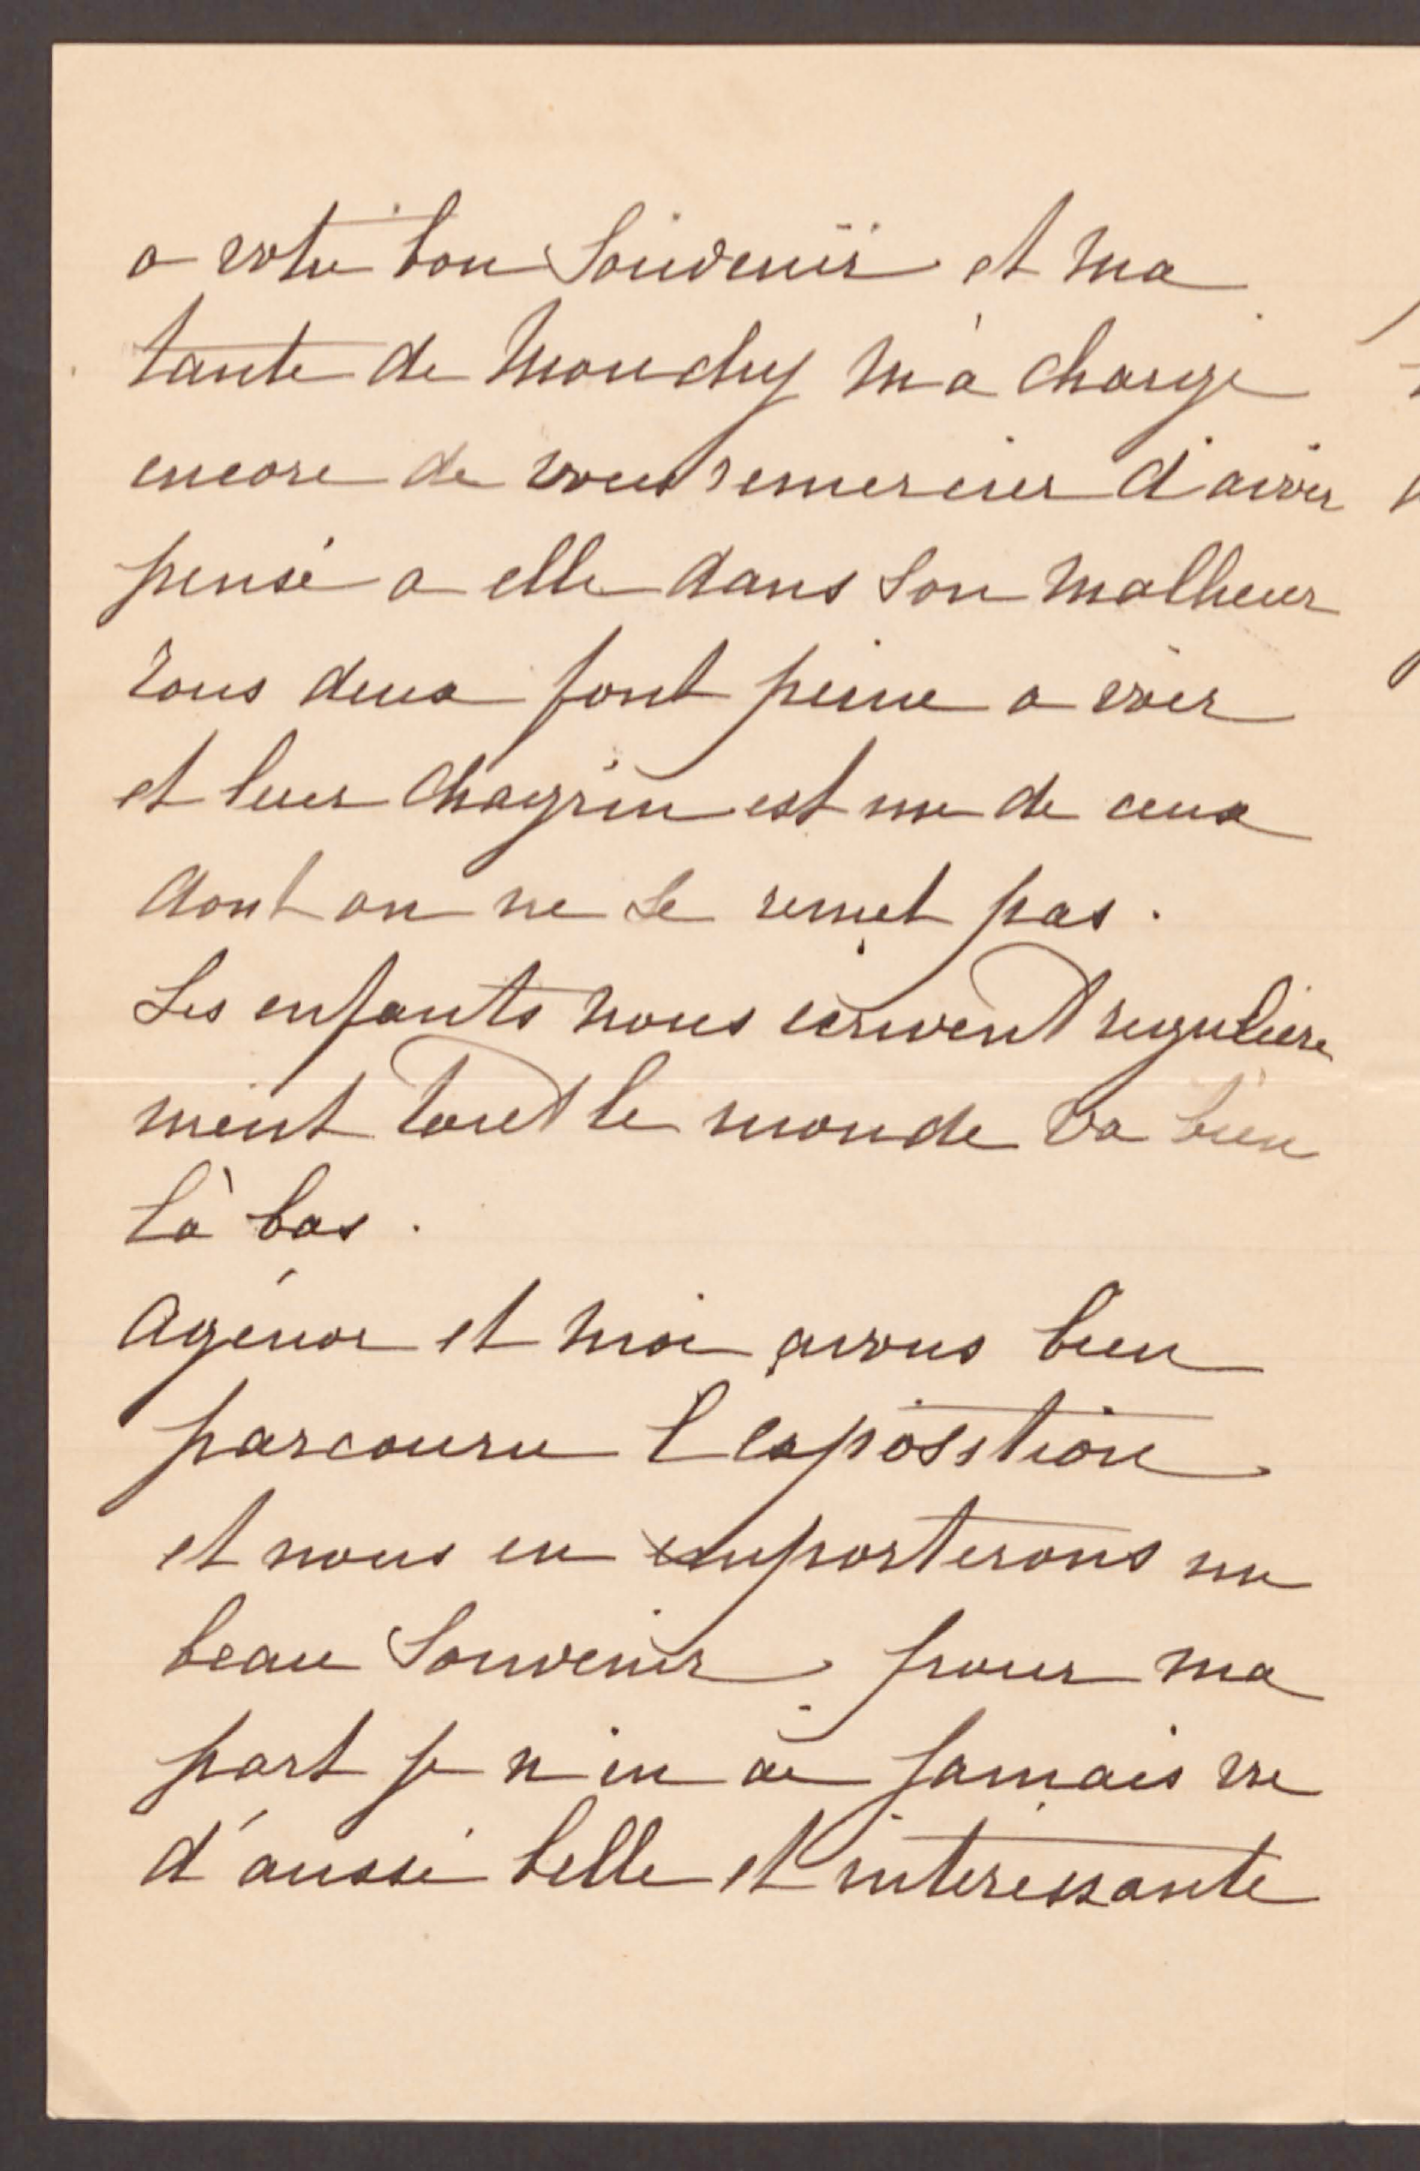 a votre bon souvenir et ma
tante de Mouchy m'a chargé
encore de vous remercier d'avoir
pensé a elle dans son malheur
tous deux font peine a voir
et leur chagrin est un de ceux
dont on ne se remet pas.
Les enfants nous ecrivent reguliere
ment tout le monde va bien
là bas.
Agénor et moi avons bien
parcouru l exposition
et nous en emporterons un
beau souvenir, pour ma
part je n en ai jamais vu
d'aussi belle et interessante